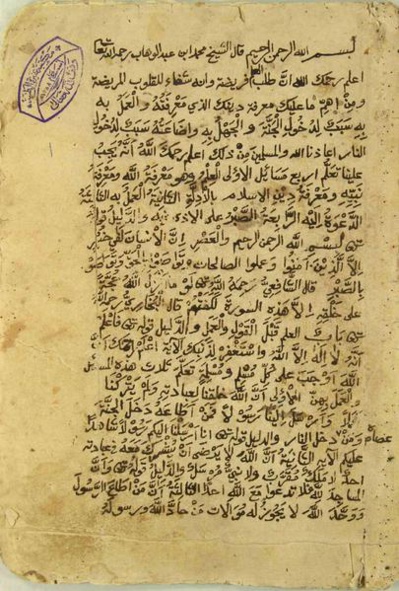 بسم الله الرحمن الرحيم قال الشيخ محمد ابن عبد الوهاب رحمه الله تعا
اعلم رحمك الله ان طلب العلم فريضة وانه شفاء للقلوب المريضة
ومن اهم ما عليك معرفة دينك الذي معرفته والعمل به
به سبب لدخول الجنة والجهل به واضاعته سبب لدخول
النار اعاذنا الله والمسلمين من ذلك اعلم رحمك الله انه يجب
علينا تعلم اربع مسائل الاولى العلم وهو معرفة الله ومعرفة
نبيه ومعرفة دين الاسلام بالادلة الثانية العمل به الثالثة
الدعوة اليه الرابعة الصبر على الاذى فيه والدليل قوله
تعا بسم الله الرحمن الرحيم والعصر ان الانسان لفي خسر
الا الذين آمنوا وعملوا الصالحات وتواصوا بالحق وتواصوا
بالصبر قال الشافعي رحمه الله تعا لو ما انزل الله حجة
على خلقه الا هذه السورة لكفتهم قال البخاري رحمه الله
تعا باب العلم قبل القول والعمل والدليل قوله تعا فاعلم
انه لا اله الا الله واستغفر لذنبك الآية اعلم رحمك الله
الله اوجب على كل مسلم ومسلمة تعلم ثلاث هذه المسايل
والعمل بهن الاولى ان الله خلقنا لعبادته ولم يتركنا
هملا وارسل الينا رسولا فمن اطاعه دخل الجنة
ومن عصاه دخل النار والدليل قوله تعا انا ارسلنا اليكم رسولا شاهدا
عليكم الآية الثانية ان الله لا يرضى ان يشرك معه في عبادته
احد لا ملك مقرب ولا نبي مرسل والدليل قوله تعا وان
المساجد لله فلا تدعوا مع الله احدا الثالثة ان من اطاع الرسول
ووحد الله لا يجوز له موالات من حاد الله ورسوله